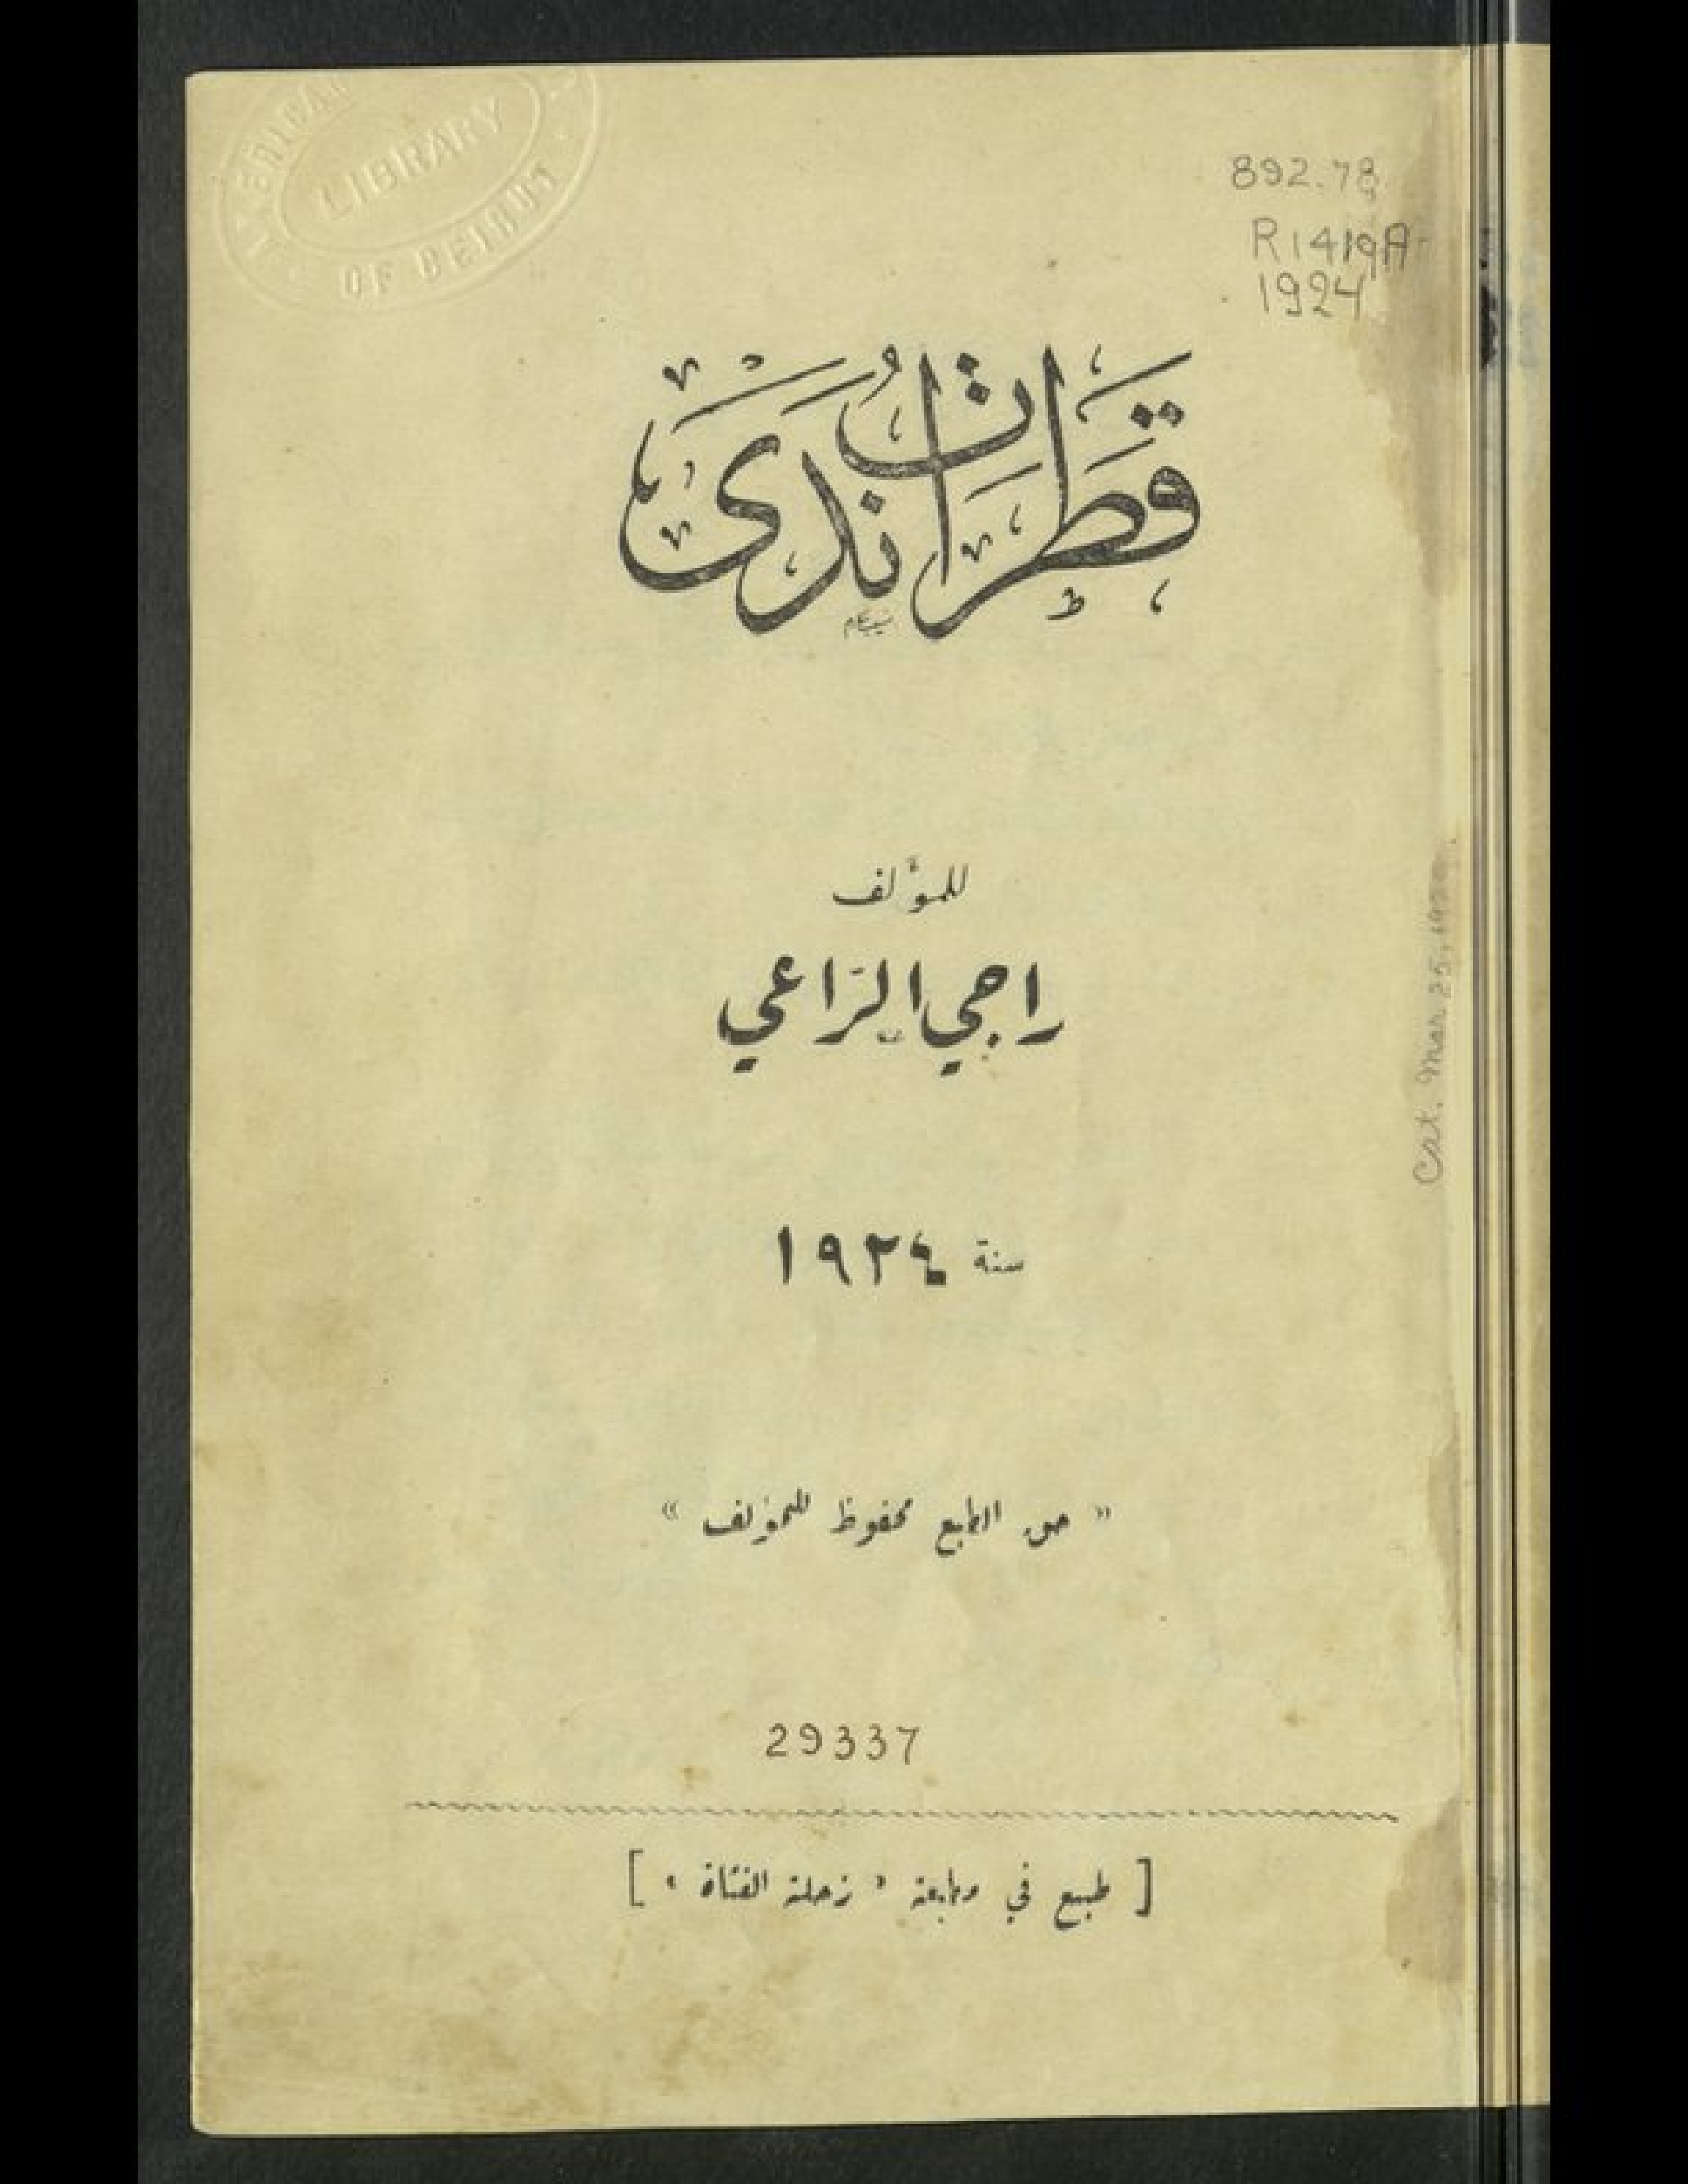 AMERICAN
LIBRARY
OF BEIRUT
892.78
R1419A
1924
قَطَرَاتُ نَدَىً
للمؤلف
راجي الرّاعي
سنة ١٩٢٤
« حق الطبع محفوظ للمؤلف »
Cat. Mar. 25,
29337
[ طبع في مطبعة « زحلة الفتاة » ]